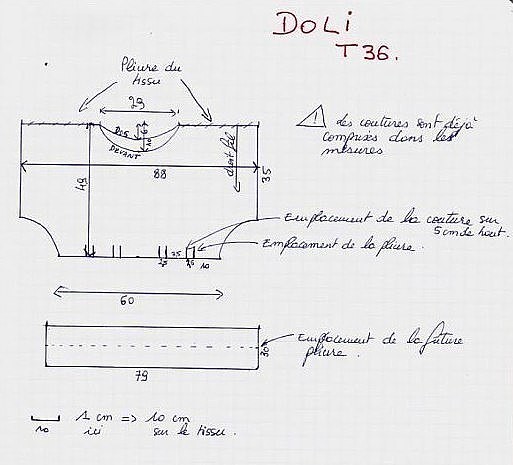 DOLi
T 36.
Pliure du
tissu
29
DOS
6
10
DEVANT
49
88
droit fil
35
⚠ Les coutures sont déjà
comprises dans les
mesures
Emplacement de la couture sur
5cm de haut.
Emplacement de la pliure.
7,5
2,5
2,5
10
60
Emplacement de la future
pliure.
30
79
10
1 cm => 10 cm
ici sur le tissu.